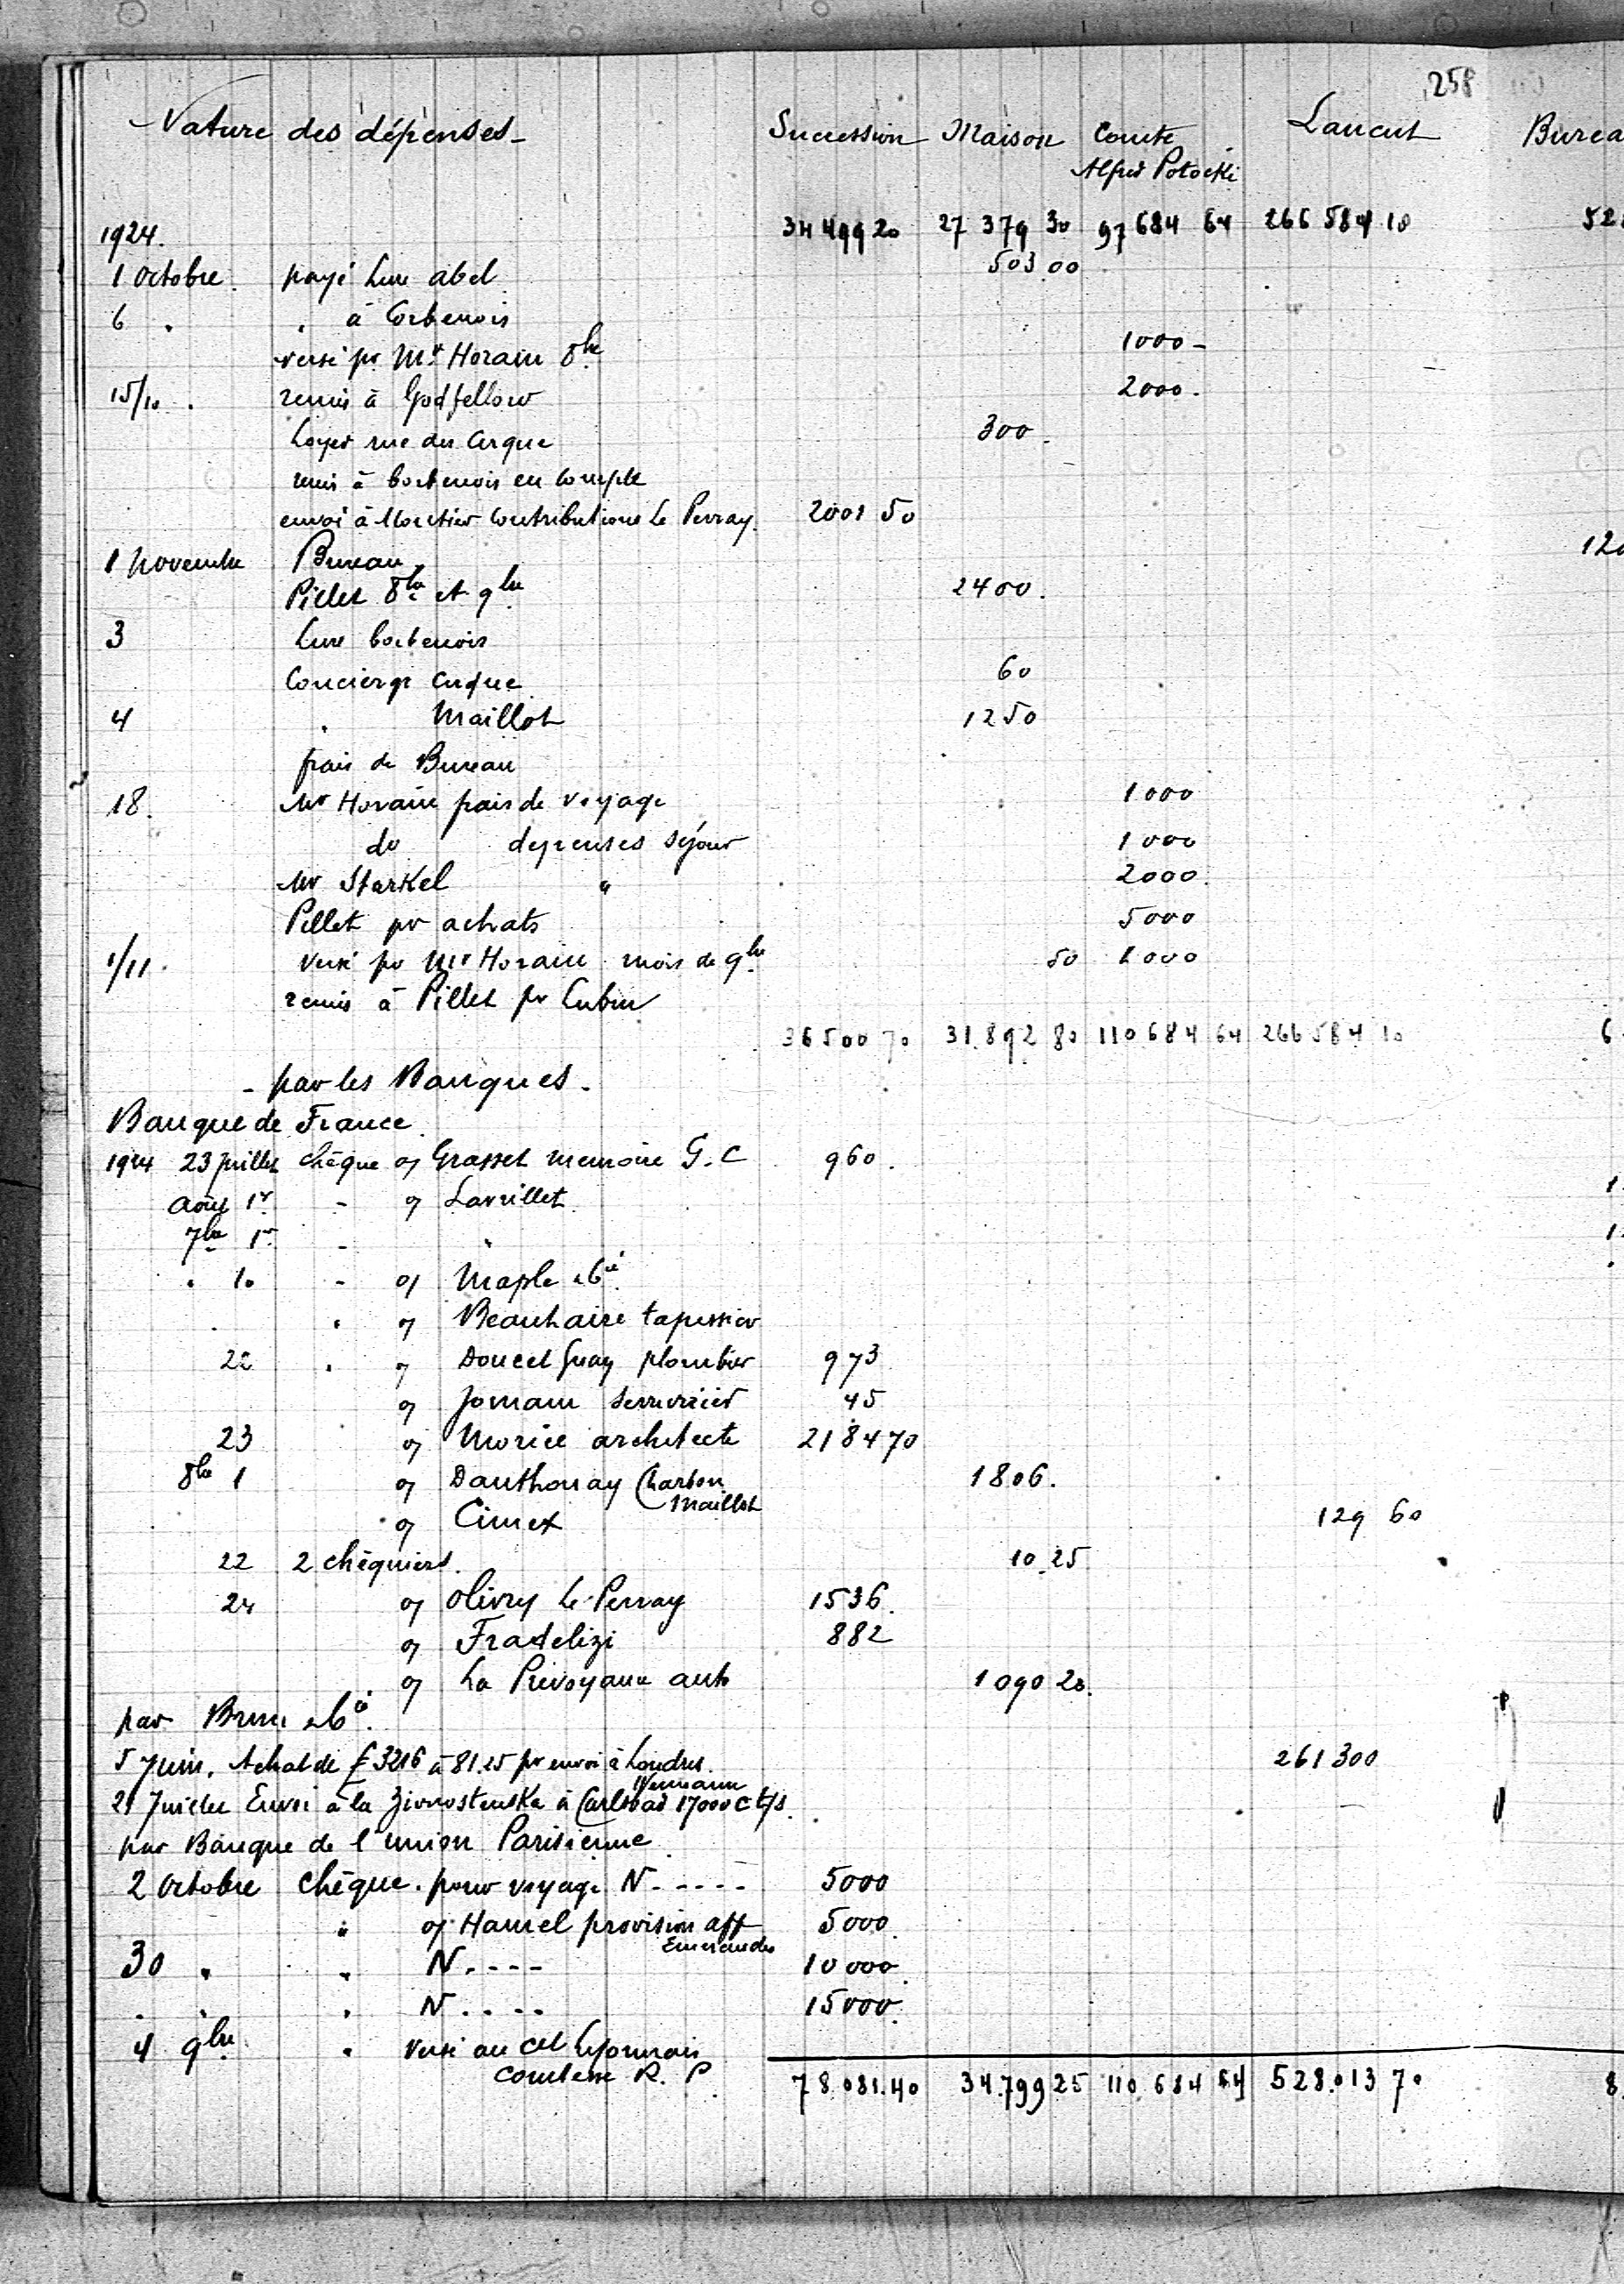 258
Nature des dépenses - Succession Maison Comte Lancut Burea
Alfred Potocki
1924. 34 499 20 27 379 30 97 684 64 266 584 10 52
1 Octobre. payé Abel 503 00
6 " " à Corbenois
versé pr Mr Horain 8bre 1000 -
15/10 . remis à Godfellow 2000.
Loyer rue du Cirque 300.
remis à Corbenois en compte
envoi à Moutier Contributions Le Perray. 2001 50
1 Novembre Bureau 120
Pillet 8bre et 9bre 2400.
3 Corbenois
Concierge Cirque 60
4 " Maillot 1250
frais de Bureau
18. Mr Horain frais de voyage 1000
do depenses séjour 1000
Mr Starkel " 2000.
Pillet pr achats 5000
1/11. Versé pr Mr Horain mois de 9bre 50 1000
remis à Pillet pr
36500 70 31.892 80 110.684 64 266 584 10 6
- par les Banques -
Banque de France.
1924 23 Juillet chèque o/ Grasset memoire G. C 960.
Août 1r - o/ Lavrillet 1
7bre 1r - " 1
" 10 - o/ Maple & Cie
" o/ Beauhaire tapissier
22 " o/ Doucet Guay plombier 973
o/ Jomain serrurier 45
23 o/ Morice architecte 2184 70
8bre 1 o/ Dauthonay Charbon 1806.
Maillot
o/ Cimex 129 60
22 2 chéquiers. 10.25
24 o/ Olivry Le Perray 1536.
o/ Fradelizi 882
o/ La Prévoyance auto 1090 20.
par & Cie.
5 Juin. Achat de £ 3216 à 81.25 pr envoi à Londres. 261 300
21 Juillet Envoi à la Zivnostenska à Carlsbad 17000 c t/s.
par Banque de l'Union Parisienne
2 Octobre Chèque. pour voyage N - - - - - 5000
" o/ Hamel provision aff 5000
Emeraudes
30 " " N. - - - 10 000.
. " " N. . . . 15000.
4 9bre " Versé au Cdt Lyonnais
Comtesse R. P.
78.081.40 34.799 25 110 684 64 528.013 70 8